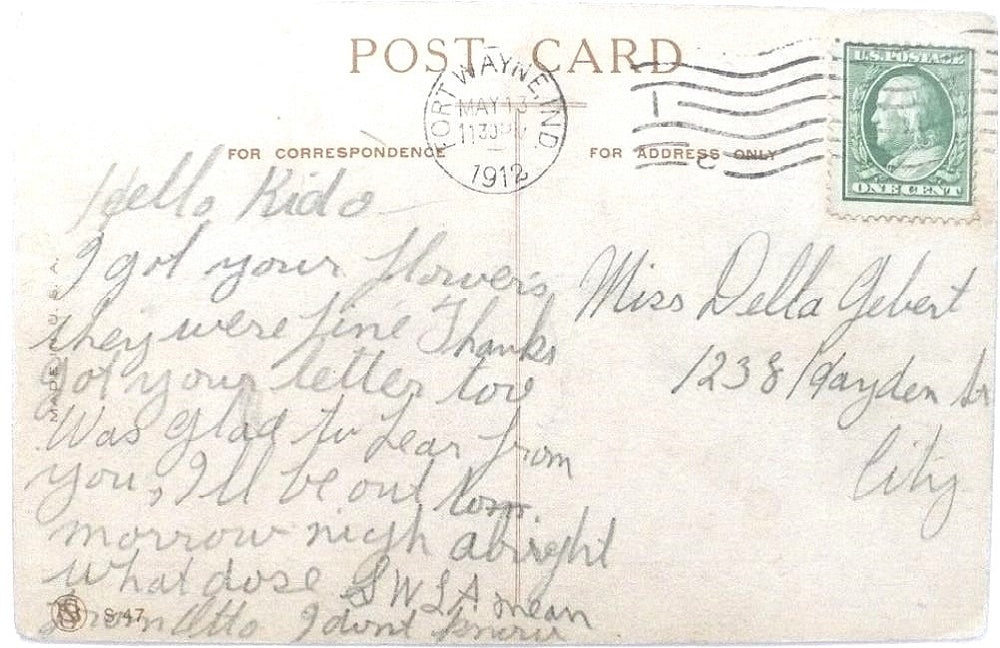 POST CARD
FORT WAYNE, IND
MAY 13
1130
1912
U.S. POSTAGE
ONE CENT
FOR CORRESPONDENCE
FOR ADDRESS ONLY
Hello Kido
I got your flowers
they were fine Thanks
got your letter too
Was glad to hear from
you, I'll be out tom
morrow nigh alright
What dose SWSA mean
From Otto I dont know
Miss Della Gebert
1238 Hayden St
City
MADE IN U.S.A.
S-47